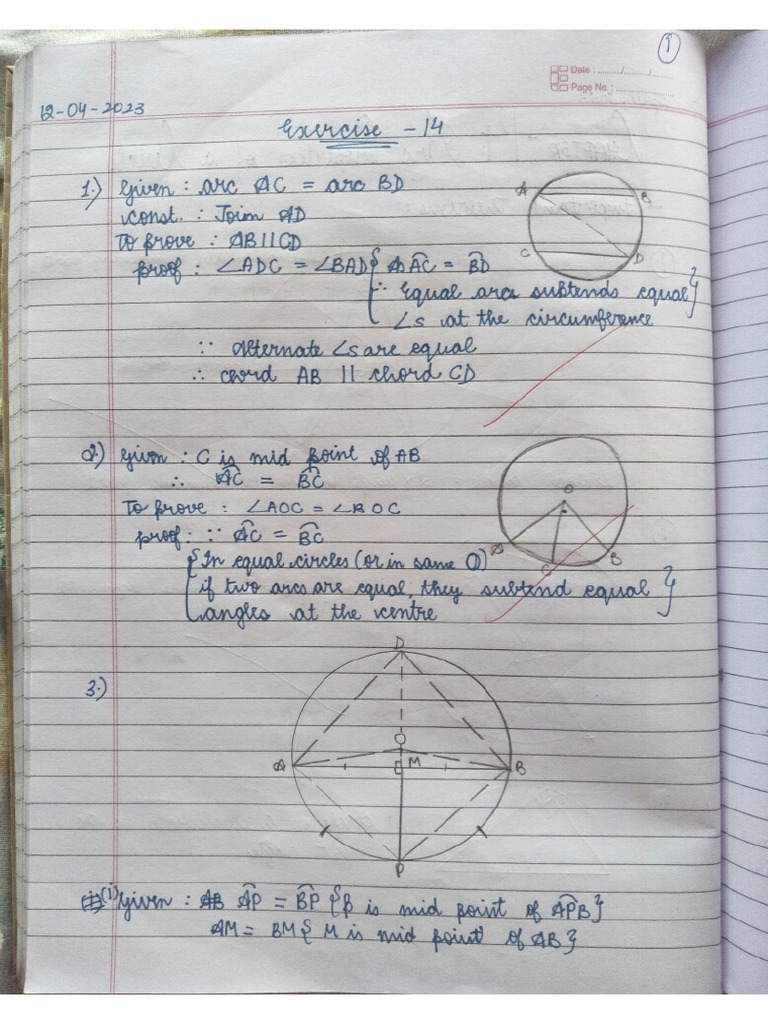 ①
Date : ....../....../......
Page No. : ..................
12-04-2023
Exercise - 14
1.) Given : arc AC = arc BD
const. : Join AD
To prove : AB || CD
proof : ∠ADC = ∠BAD { AC = BD
∵ Equal arcs subtends equal
∠s at the circumference }
∵ Alternate ∠s are equal
∴ chord AB || chord CD
A
B
C
D
2.) Given : C is mid point of AB
∴ AC = BC
To prove : ∠AOC = ∠BOC
proof : ∵ AC = BC
{ In equal circles (or in same ⊙)
if two arcs are equal, they subtend equal
angles at the centre }
O
A
C
B
3.)
D
O
A
M
B
P
(i) Given : AP = BP { P is mid point of APB }
AM = BM { M is mid point of AB }